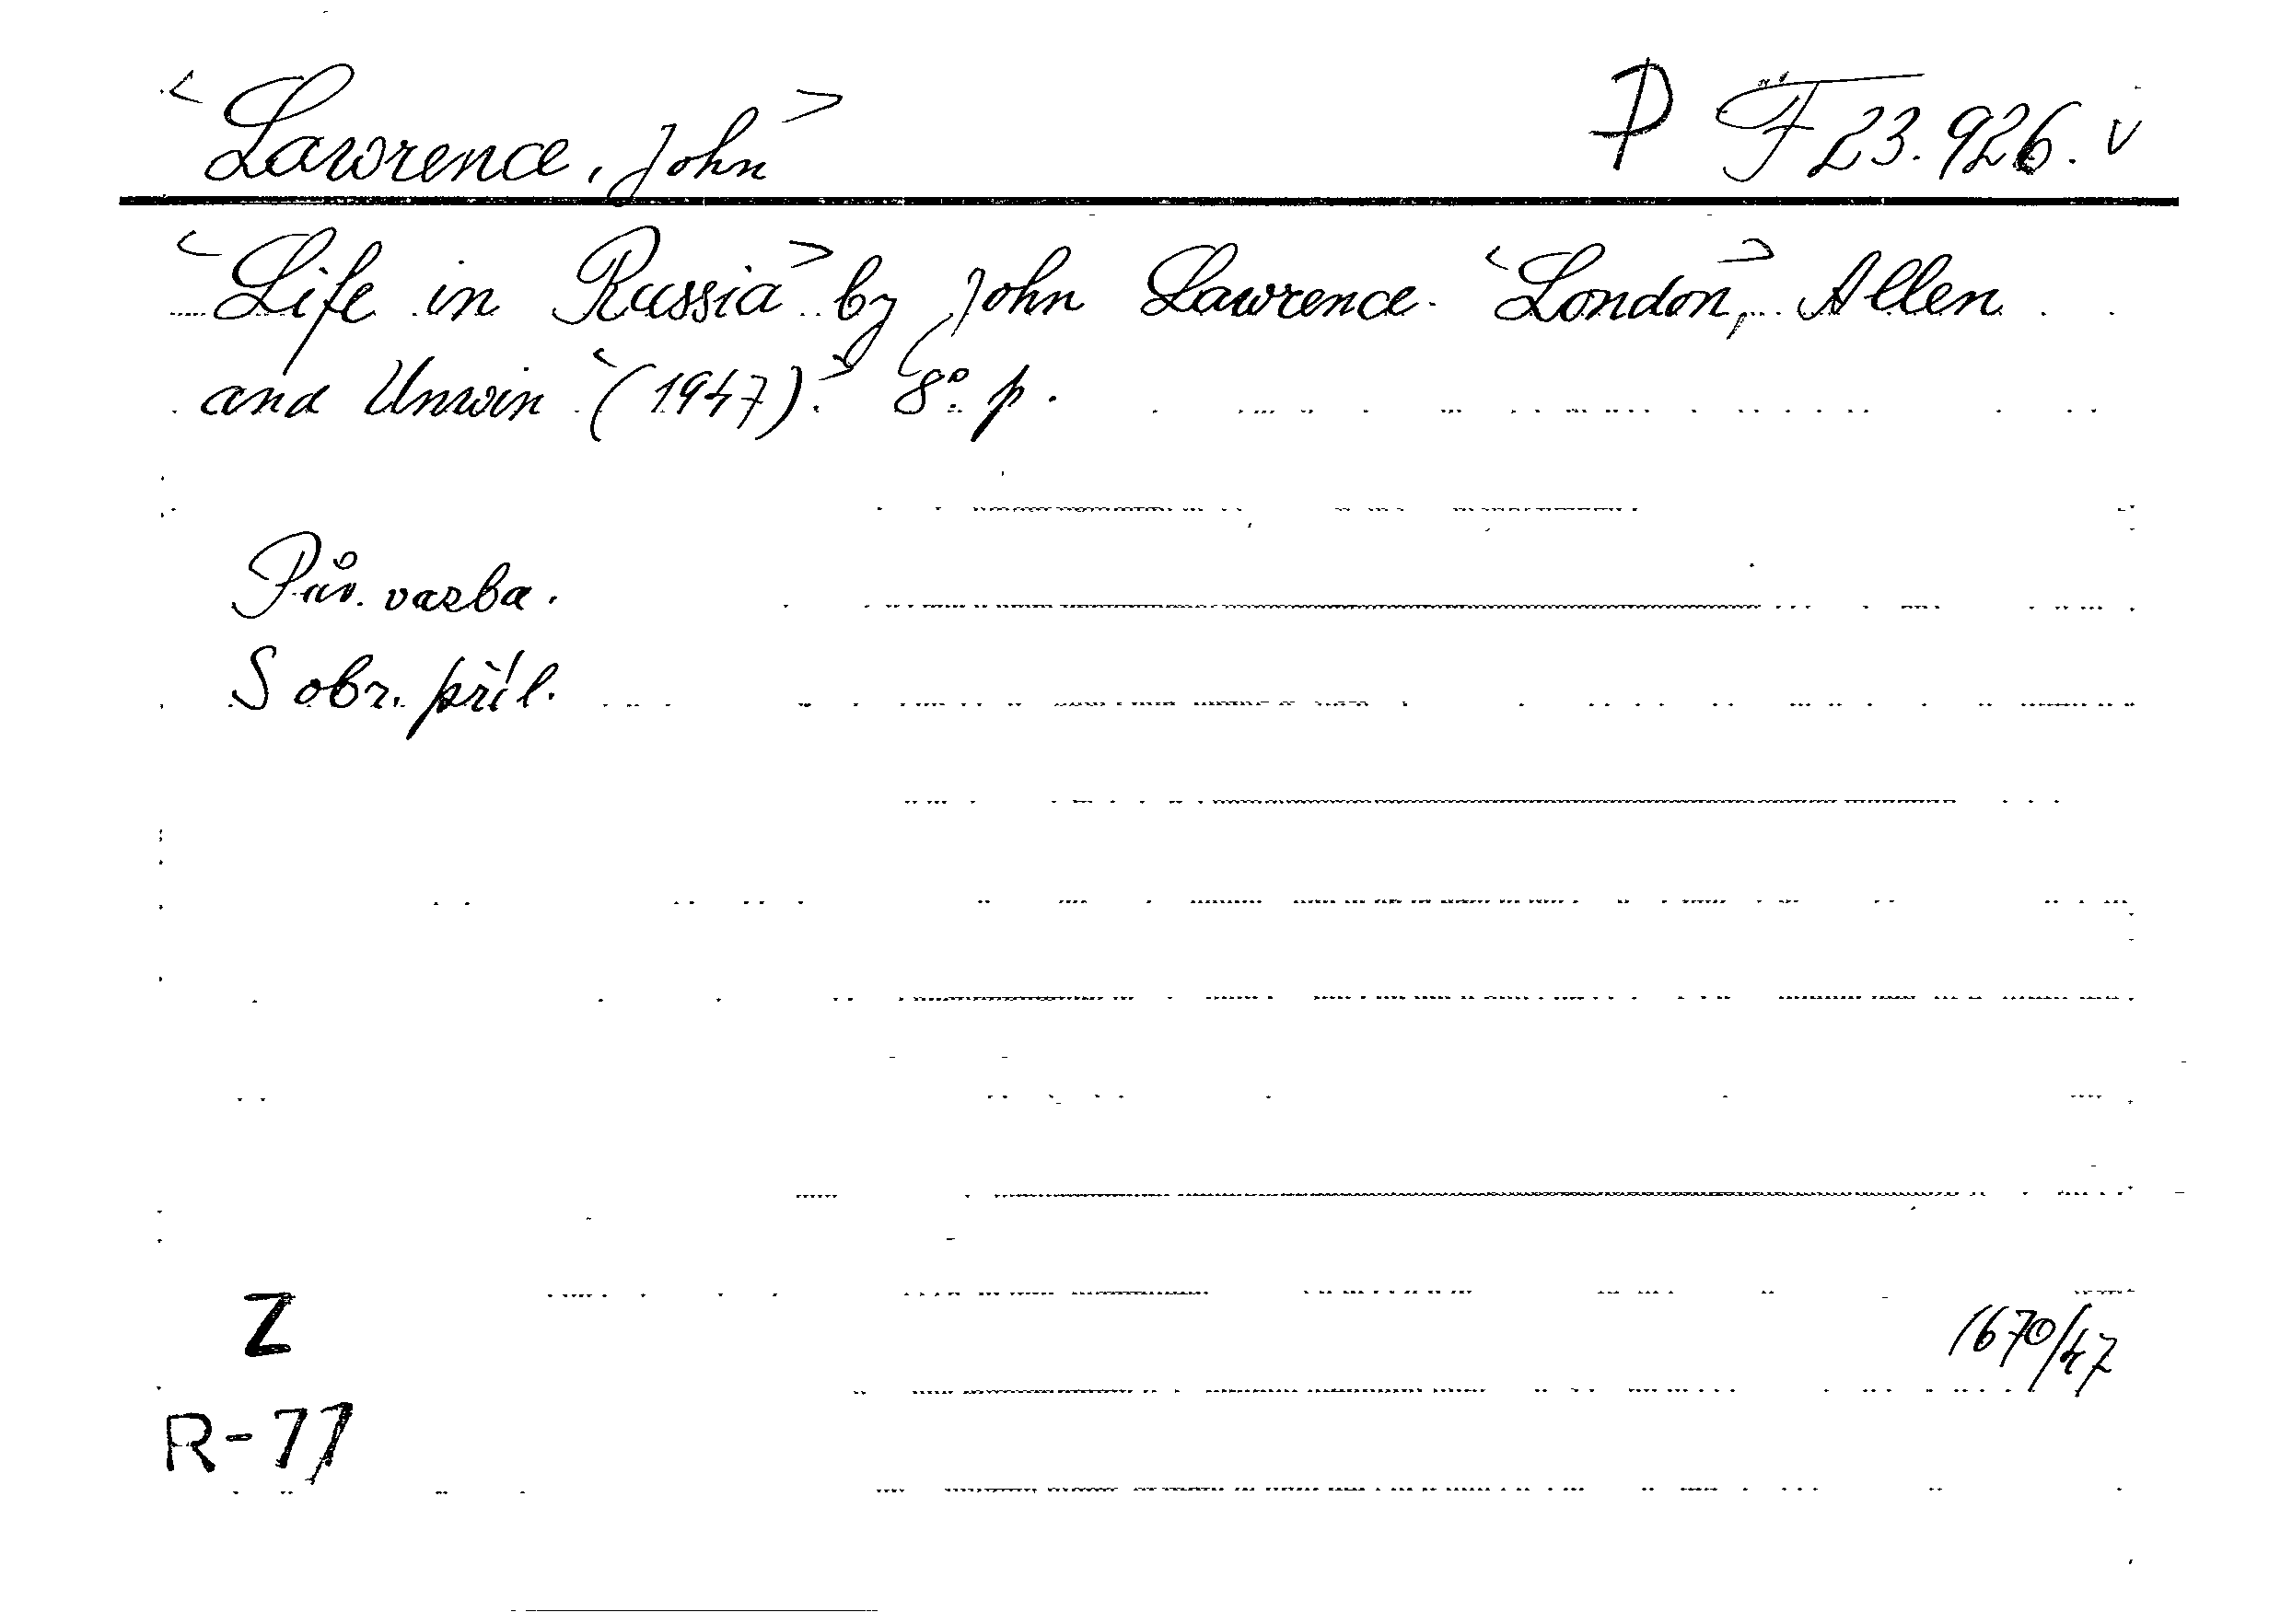 <Lawrence, John> P F 23.926. v
<Life in Russia> by John Lawrence. <London,> Allen
and Unwin <(1947).> 8° p.
Pův. vazba.
S obr. příl.
Z
1670/47
R-77